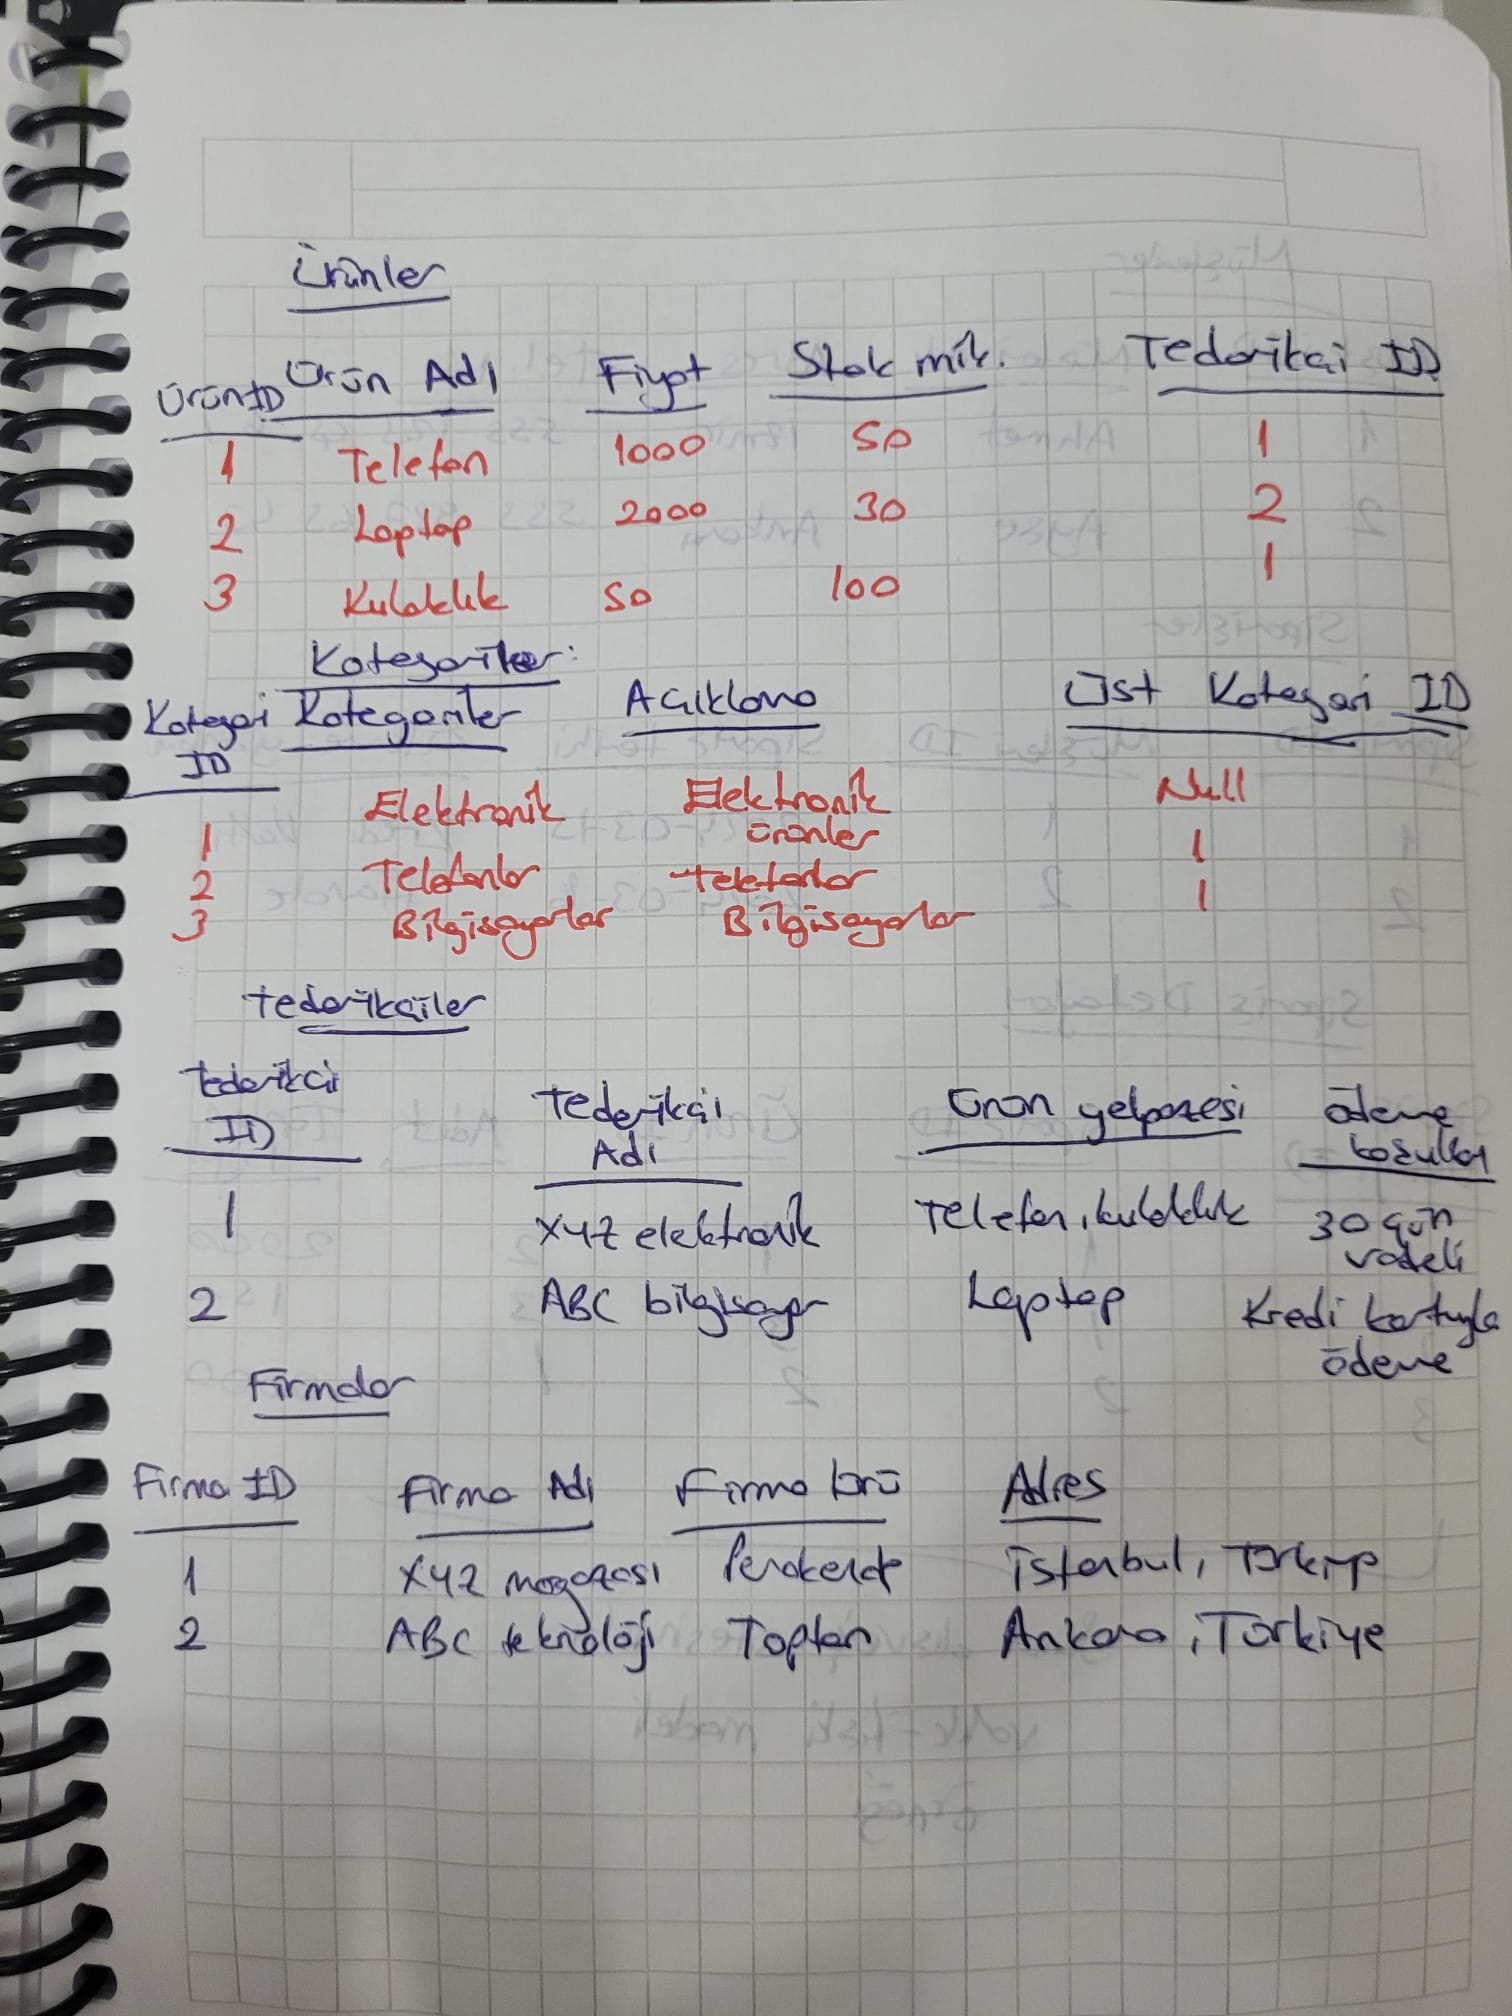 Ürünler
ÜrünID Ürün Adı Fiyat Stok mik. Tedarikçi ID
1 Telefon 1000 50 1
2 Laptop 2000 30 2
3 Kulaklık 50 100 1
Kategoriler:
Kategori ID Kategoriler Açıklama Üst Kategori ID
1 Elektronik Elektronik ürünler Null
2 Telefonlar Telefonlar 1
3 Bilgisayarlar Bilgisayarlar 1
Tedarikçiler
Tedarikçi ID Tedarikçi Adı Ürün yelpazesi ödeme koşulları
1 XYZ elektronik Telefon, kulaklık 30 gün vadeli
2 ABC bilgisayar Laptop Kredi kartıyla ödeme
Firmalar
Firma ID Firma Adı Firma türü Adres
1 XYZ mağazası Perakende İstanbul, Türkiye
2 ABC teknoloji Toptan Ankara, Türkiye